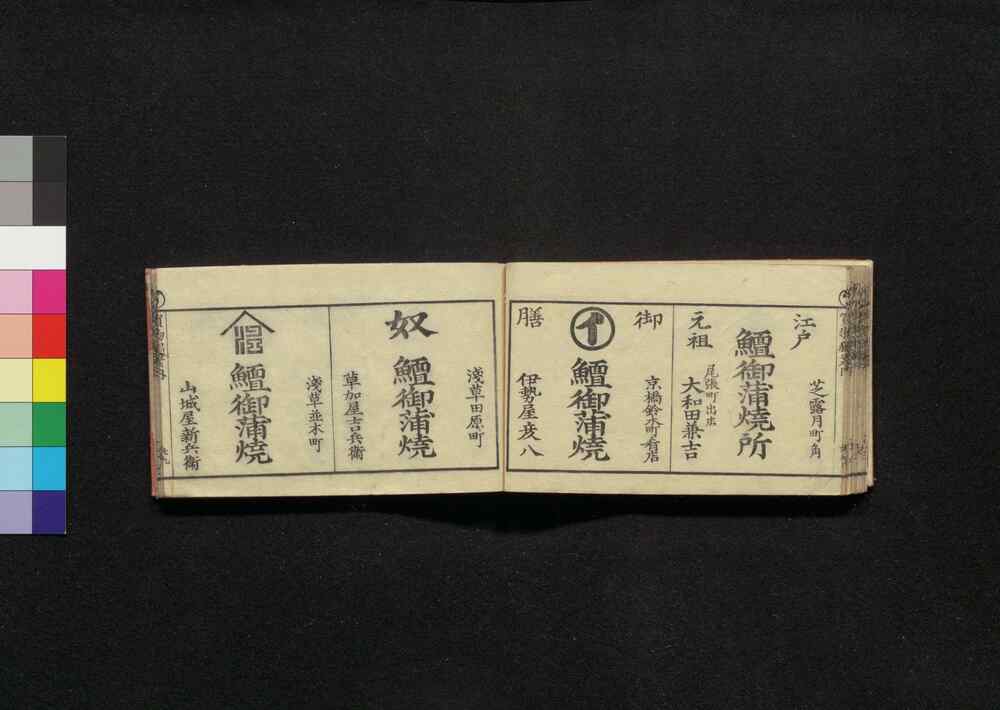 江戸
芝露月町角
鱣御蒲焼所
元祖
尾張町出店
大和田兼吉
御
京橋鈴木町肴店
イ
鱣御蒲焼
膳
伊勢屋彦八
淺草田原町
奴
鱣御蒲焼
草加屋吉兵衛
淺草並木町
鱣御蒲焼
山城屋新兵衛